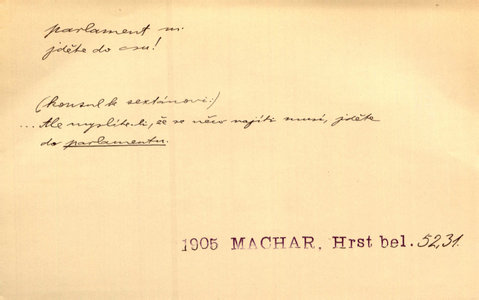 parlament m.
jděte do csu!
(konsul k sextánovi:)
...Ale myslíte-li, že se něco najíti musí, jděte
do parlamentu.
1905 MACHAR, Hrst bel. 52,31.